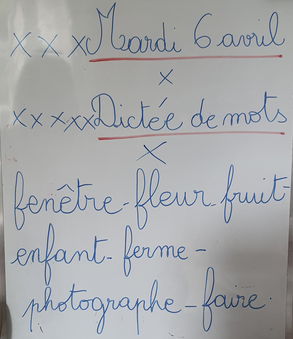 x x x Mardi 6 avril
x
x x x x x Dictée de mots
x
fenêtre - fleur - fruit -
enfant - ferme -
photographe - faire.